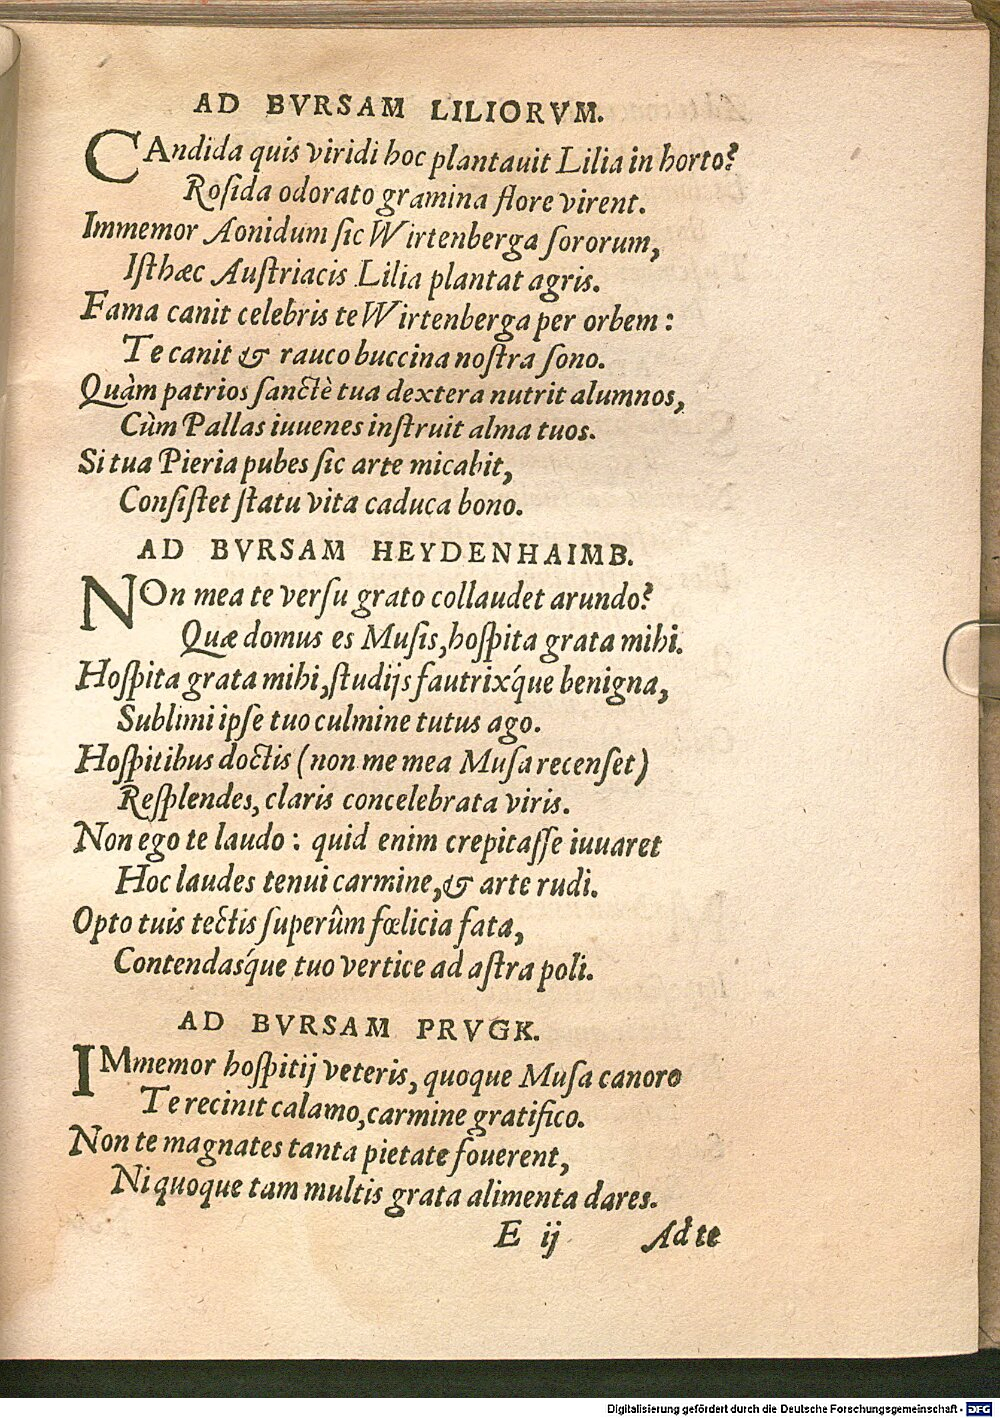 AD BVRSAM LILIORVM.
CAndida quis viridi hoc plantauit Lilia in horto?
Roſida odorato gramina flore virent.
Immemor Aonidum ſic Wirtenberga ſororum,
Iſthæc Auſtriacis Lilia plantat agris.
Fama canit celebris te Wirtenberga per orbem:
Te canit & rauco buccina noſtra ſono.
Quàm patrios ſanctè tua dextera nutrit alumnos,
Cùm Pallas iuuenes inſtruit alma tuos.
Si tua Pieria pubes ſic arte micabit,
Conſiſtet ſtatu vita caduca bono.
AD BVRSAM HEYDENHAIMB.
NOn mea te verſu grato collaudet arundo?
Quæ domus es Muſis, hoſpita grata mihi.
Hoſpita grata mihi, ſtudijs fautrix´que benigna,
Sublimi ipſe tuo culmine tutus ago.
Hoſpitibus doctis (non me mea Muſa recenſet)
Reſplendes, claris concelebrata viris.
Non ego te laudo: quid enim crepitaſſe iuuaret
Hoc laudes tenui carmine, & arte rudi.
Opto tuis tectis ſuperûm fœlicia fata,
Contendas´que tuo vertice ad aſtra poli.
AD BVRSAM PRVGK.
IMmemor hoſpitij veteris, quoque Muſa canoro
Te recinit calamo, carmine gratifico.
Non te magnates tanta pietate fouerent,
Ni quoque tam multis grata alimenta dares.
E ij Ad te
Digitalisierung gefördert durch die Deutsche Forschungsgemeinschaft - DFG